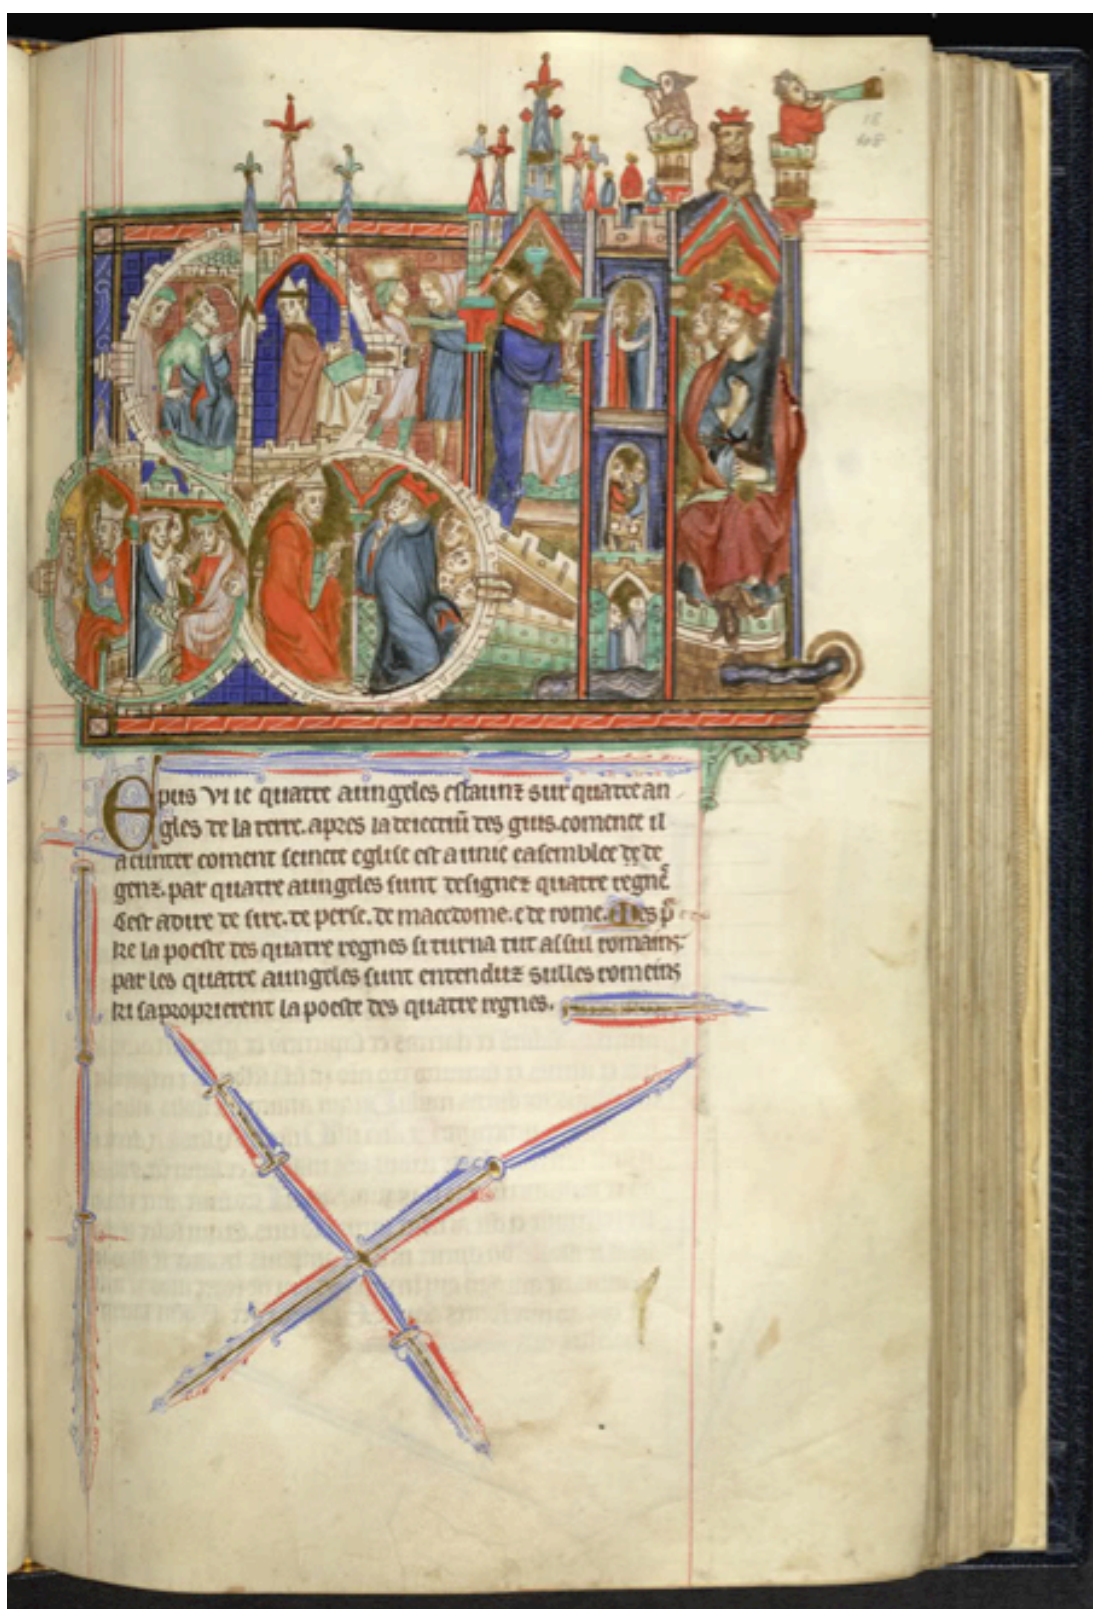 18
408
Epus vi ie quatre aungeles estaunz sur quatre an
gles de la terre. apres la deiectiun des giuis. comence il
a cunter coment seincte eglise est a unie e asemblee de
genz. par quatre aungeles sunt designez quatre regne
Cest adire de sire. de perse. de macedome. e de rome. Mes p
ke la poeste des quatre regnes si turna tut as sul romains.
par les quatre aungeles sunt entenduz sulles romeins
ki sa proprierent la poeste des quatre regnes.